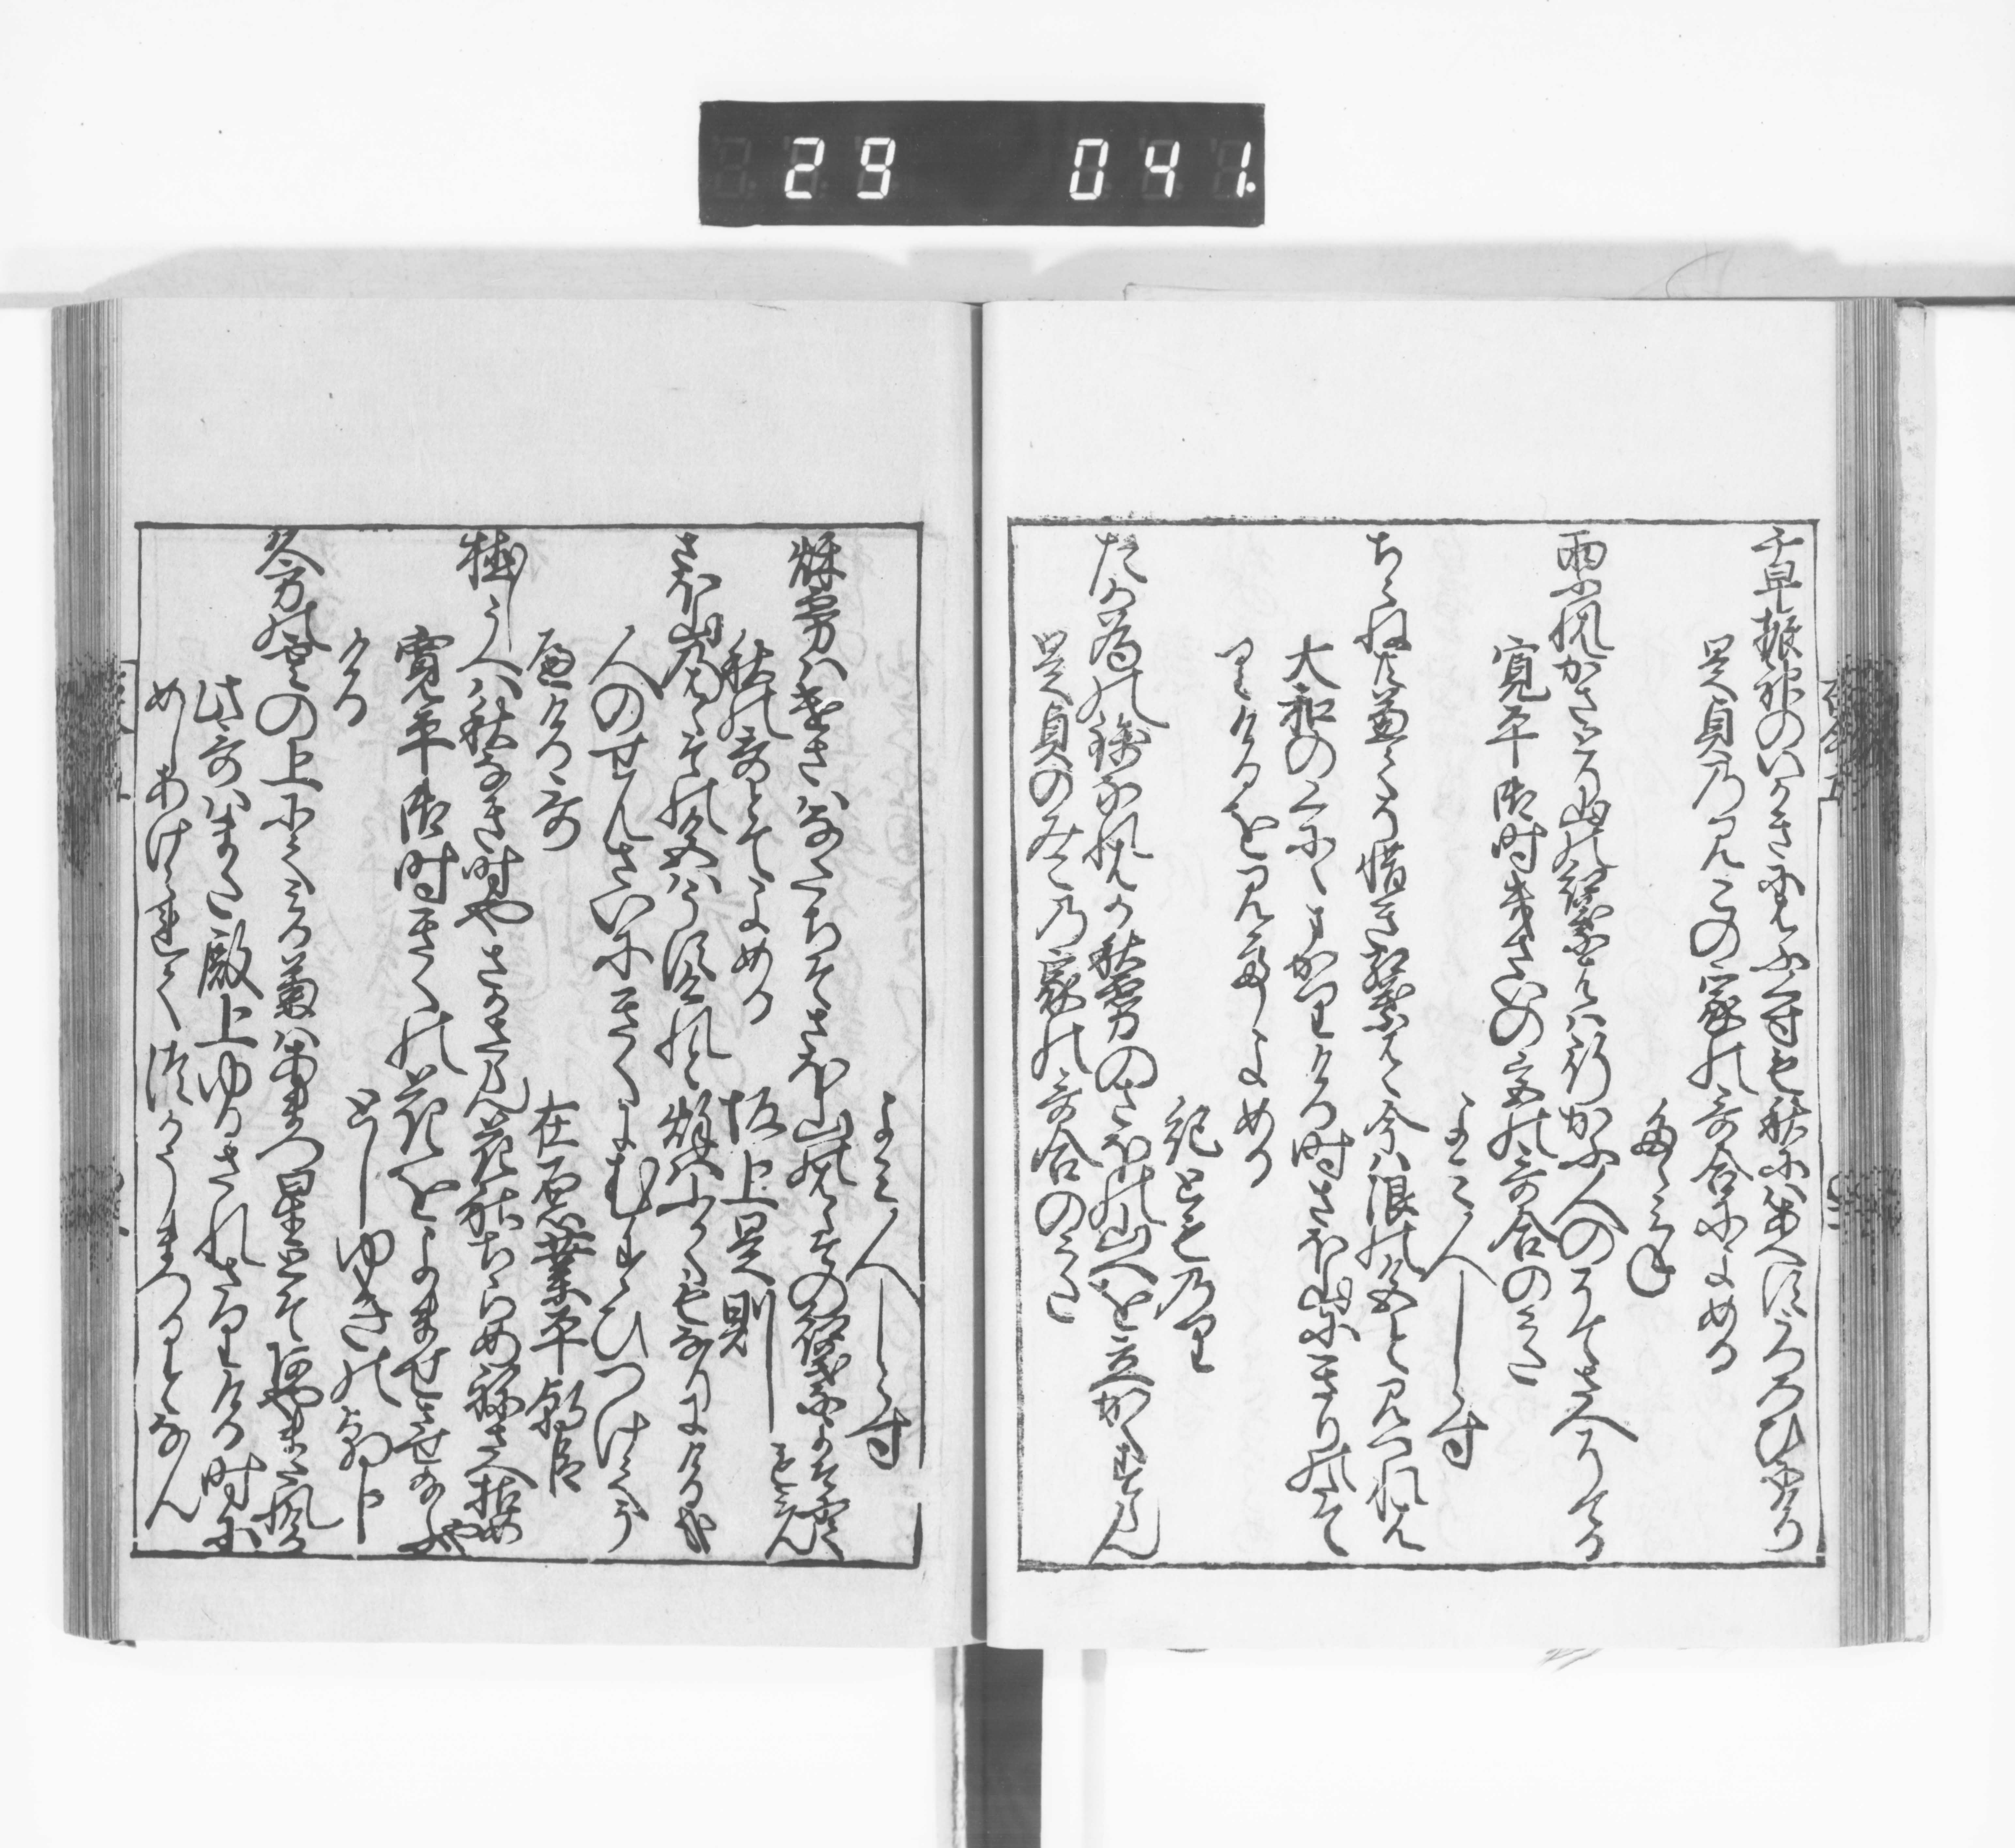 29 041
千早振神のいかきにはふくすも秋にはあへすうつろひにけり
是貞のみこの家の哥合によめる
たゝみね
雨ふれはかさとり山の紅葉々は行かふ人のそてさへそてる
寛平御時きさいの宮の哥合のうた
よみ人しらす
ちらねともかねてそ惜き紅葉は今は限の色と見つれは
大和の国にまかりける時さほ山にきりのたて
りけるを見てよめる
紀とものり
たか為の錦なれはか秋霧のさほの山へを立かくすらん
是貞のみこの家の哥合のうた
よみ人しらす
秋霧はけさはなたちそさほ山のはゝその紅葉よそにてもみん
秋の哥とてよめる
坂上是則
さほ山のはゝその色はうすけれと秋はふかくもなりにけるかな
人のせんさいにきくにむすひつけてうへける哥
在原業平朝臣
植しうへは秋なき時やさかさらん花社ちらめ根さへ枯めや
寛平御時きくの花をよませ給ける
としゆきの朝臣
久方の雲の上にてみる菊はあまつ星とそあやまたれける
此哥はまた殿上ゆるされさりける時に
めしあけられてつかうまつるとなん